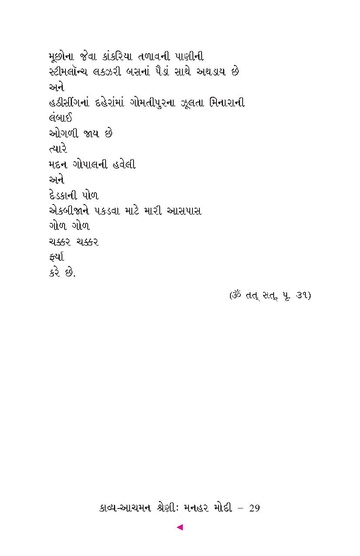 મૂછોના જેવા કાંકરિયા તળાવની પાણીની
સ્ટીમલૉન્ચ લક્ઝરી બસનાં પૈડાં સાથે અથડાય છે
અને
હઠીસીંગનાં દહેરાંમાં ગોમતીપુરના ઝૂલતા મિનારાની
લંબાઈ
ઓગળી જાય છે
ત્યારે
મદન ગોપાલની હવેલી
અને
દેડકાની પોળ
એકબીજાને પકડવા માટે મારી આસપાસ
ગોળ ગોળ
ચક્કર ચક્કર
ફર્યા
કરે છે.
(ૐ તત્ સત્, પૃ. ૩૧)
કાવ્ય-આચમન શ્રેણીઃ મનહર મોદી – 29